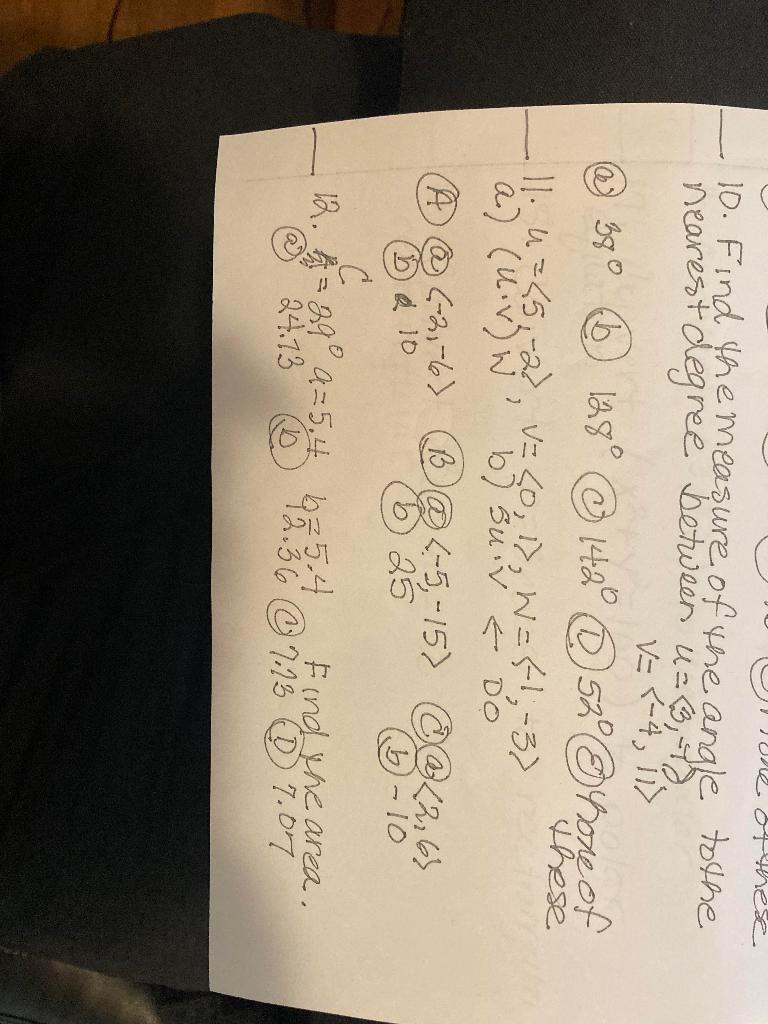 None of these
10. Find the measure of the angle to the
nearest degree between u=<3,-1>
v=<-4, 11>
(a) 38° (b) 128° (C) 142° (D) 52° (E) None of
these
11. u=<5,-2>, v=<0,1>, W=<-1,-3>
a.) (u.v)W, b) 5u.v ← Do
(A) (a) <-2,-6> (B) (a) <-5,-15> (C) (a) <2,6>
(b) 10 (b) 25 (b) -10
C
12. = 29° a=5.4 b=5.4 Find the area.
(a) 24.13 (b) 42.36 (C) 7.13 (D) 7.07